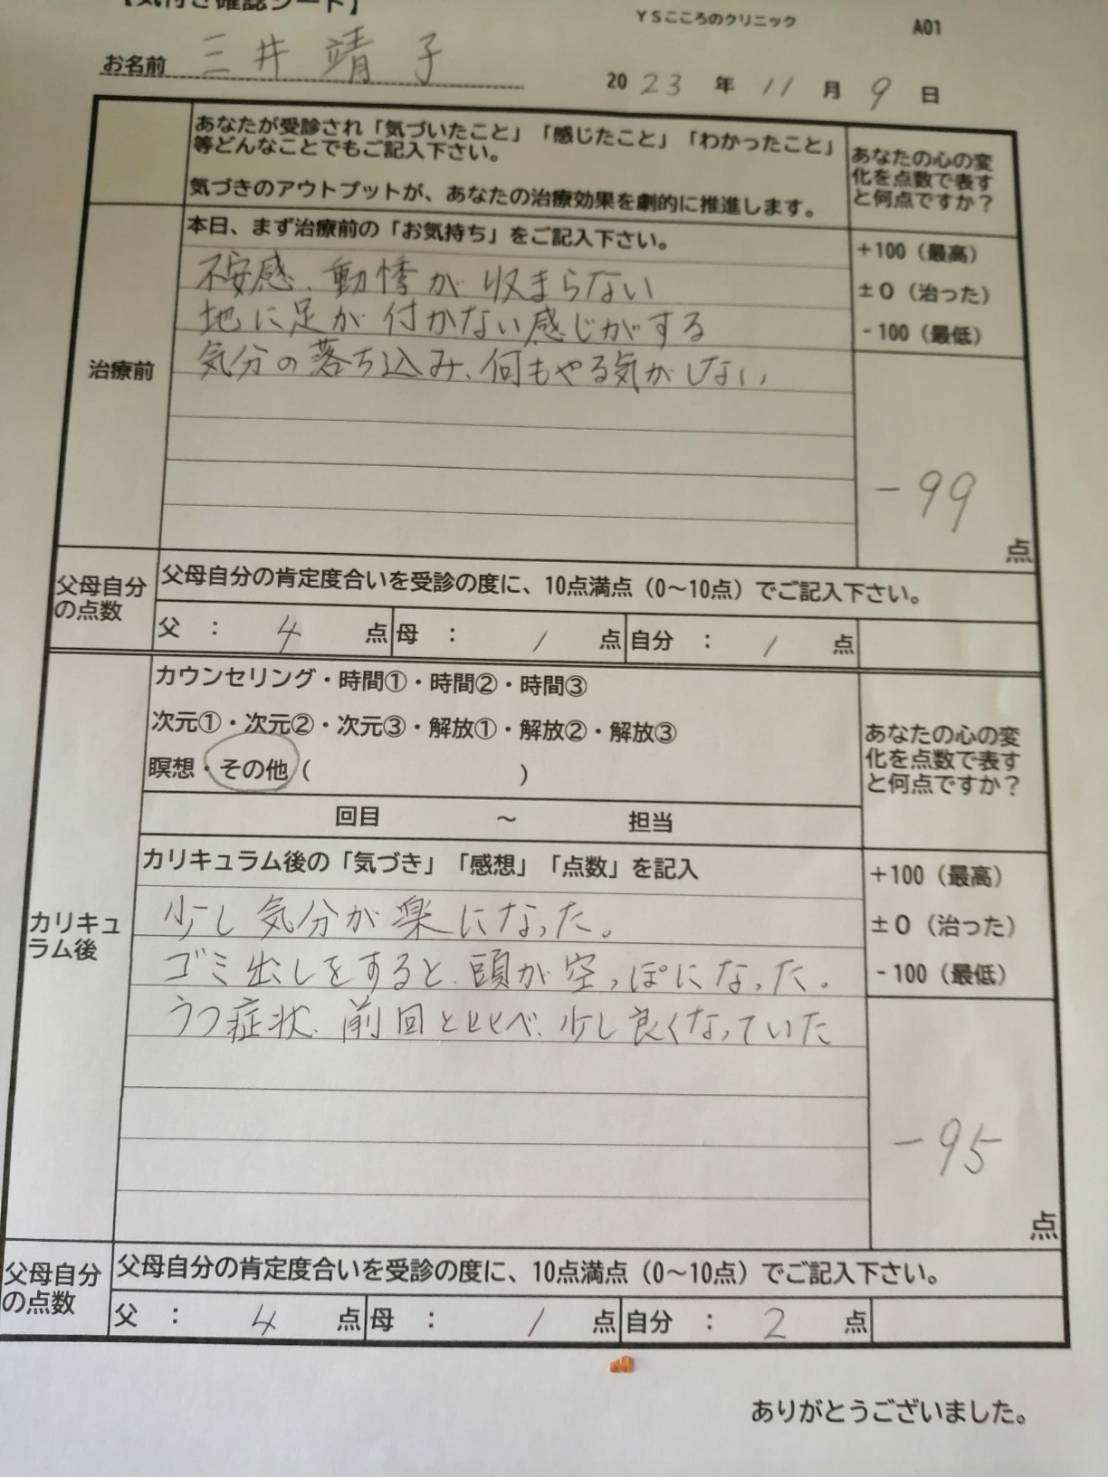 【気付き確認シート】
YSこころのクリニック
A01
お名前 三井 靖子
2023年11月9日
あなたが受診され「気づいたこと」「感じたこと」「わかったこと」
等どんなことでもご記入下さい。
気づきのアウトプットが、あなたの治療効果を劇的に推進します。
あなたの心の変
化を点数で表す
と何点ですか？
治療前
本日、まず治療前の「お気持ち」をご記入下さい。
不安感、動悸が収まらない
地に足が付かない感じがする
気分の落ち込み、何もやる気がしない
+100（最高）
±0（治った）
-100（最低）
-99
点
父母自分
の点数
父母自分の肯定度合いを受診の度に、10点満点（0～10点）でご記入下さい。
父 ： 4 点 母 ： 1 点 自分 ： 1 点
カリキュ
ラム後
カウンセリング・時間①・時間②・時間③
次元①・次元②・次元③・解放①・解放②・解放③
瞑想・その他（ ）
回目 ～ 担当
あなたの心の変
化を点数で表す
と何点ですか？
カリキュラム後の「気づき」「感想」「点数」を記入
少し気分が楽になった。
ゴミ出しをすると、頭が空っぽになった。
うつ症状、前回と比べ、少し良くなっていた
+100（最高）
±0（治った）
-100（最低）
-95
点
父母自分
の点数
父母自分の肯定度合いを受診の度に、10点満点（0～10点）でご記入下さい。
父 ： 4 点 母 ： 1 点 自分 ： 2 点
ありがとうございました。